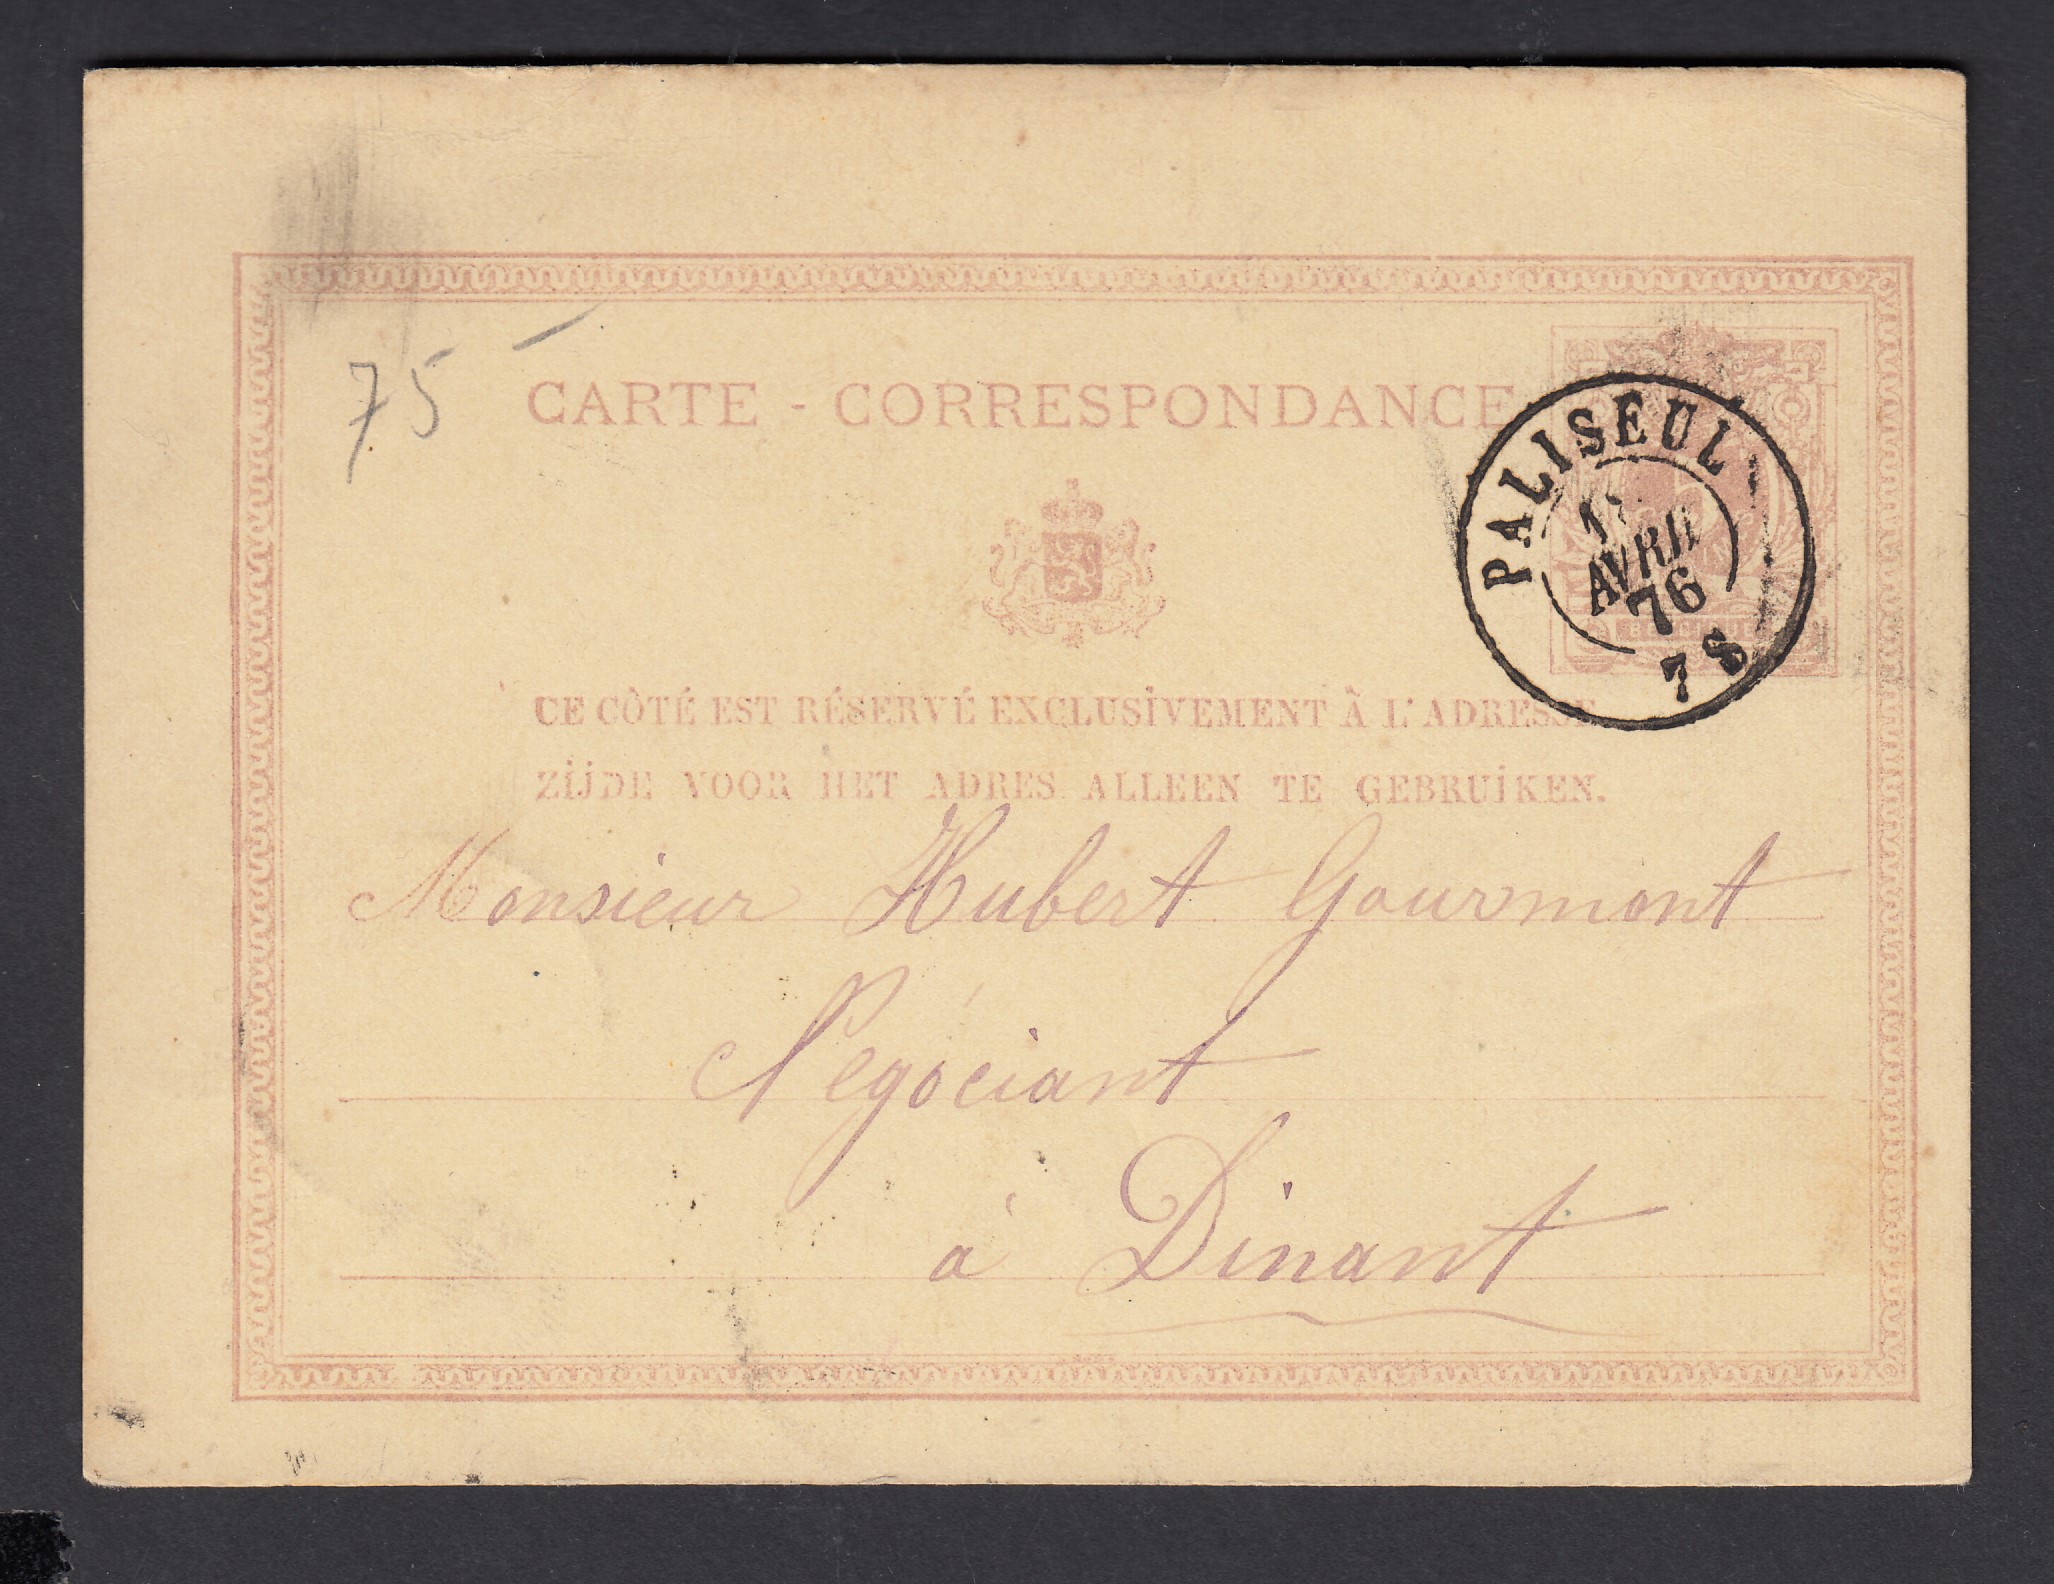 75
CARTE - CORRESPONDANCE
PALISEUL
AVRIL
76
7 8
CE CÔTÉ EST RÉSERVÉ EXCLUSIVEMENT À L'ADRESSE
ZIJDE VOOR HET ADRES ALLEEN TE GEBRUIKEN.
Monsieur Hubert Gourmont
Négociant
à Dinant